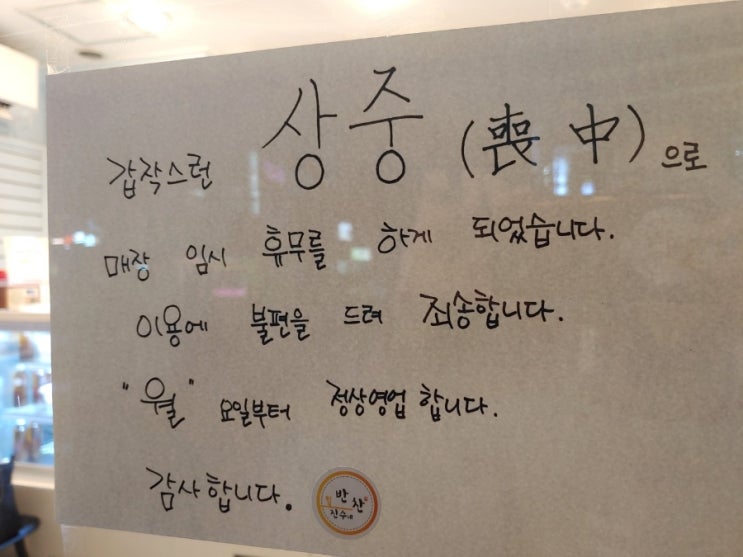 갑작스런 상중 (喪中)으로
매장 임시 휴무를 하게 되었습니다.
이용에 불편을 드려 죄송합니다.
"월" 요일부터 정상영업 합니다.
감사합니다.
반찬